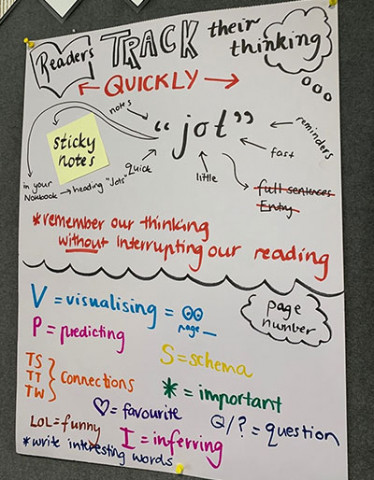 Readers TRACK their thinking
QUICKLY
notes
"jot"
reminders
fast
little
quick
sticky notes
in your Notebook → heading "Jots"
full sentences
Entry
*remember our thinking
without interrupting our reading
V = visualising =
page __
page number
P = predicting
S = schema
TS
TT
TW
Connections
* = important
♡ = favourite
Q/? = question
LOL = funny
I = inferring
*write interesting words